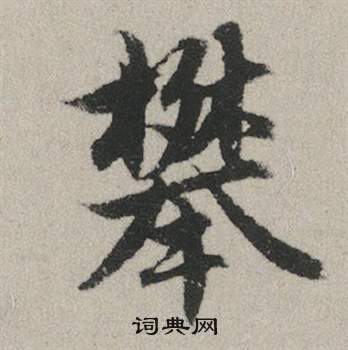 攀
词典网